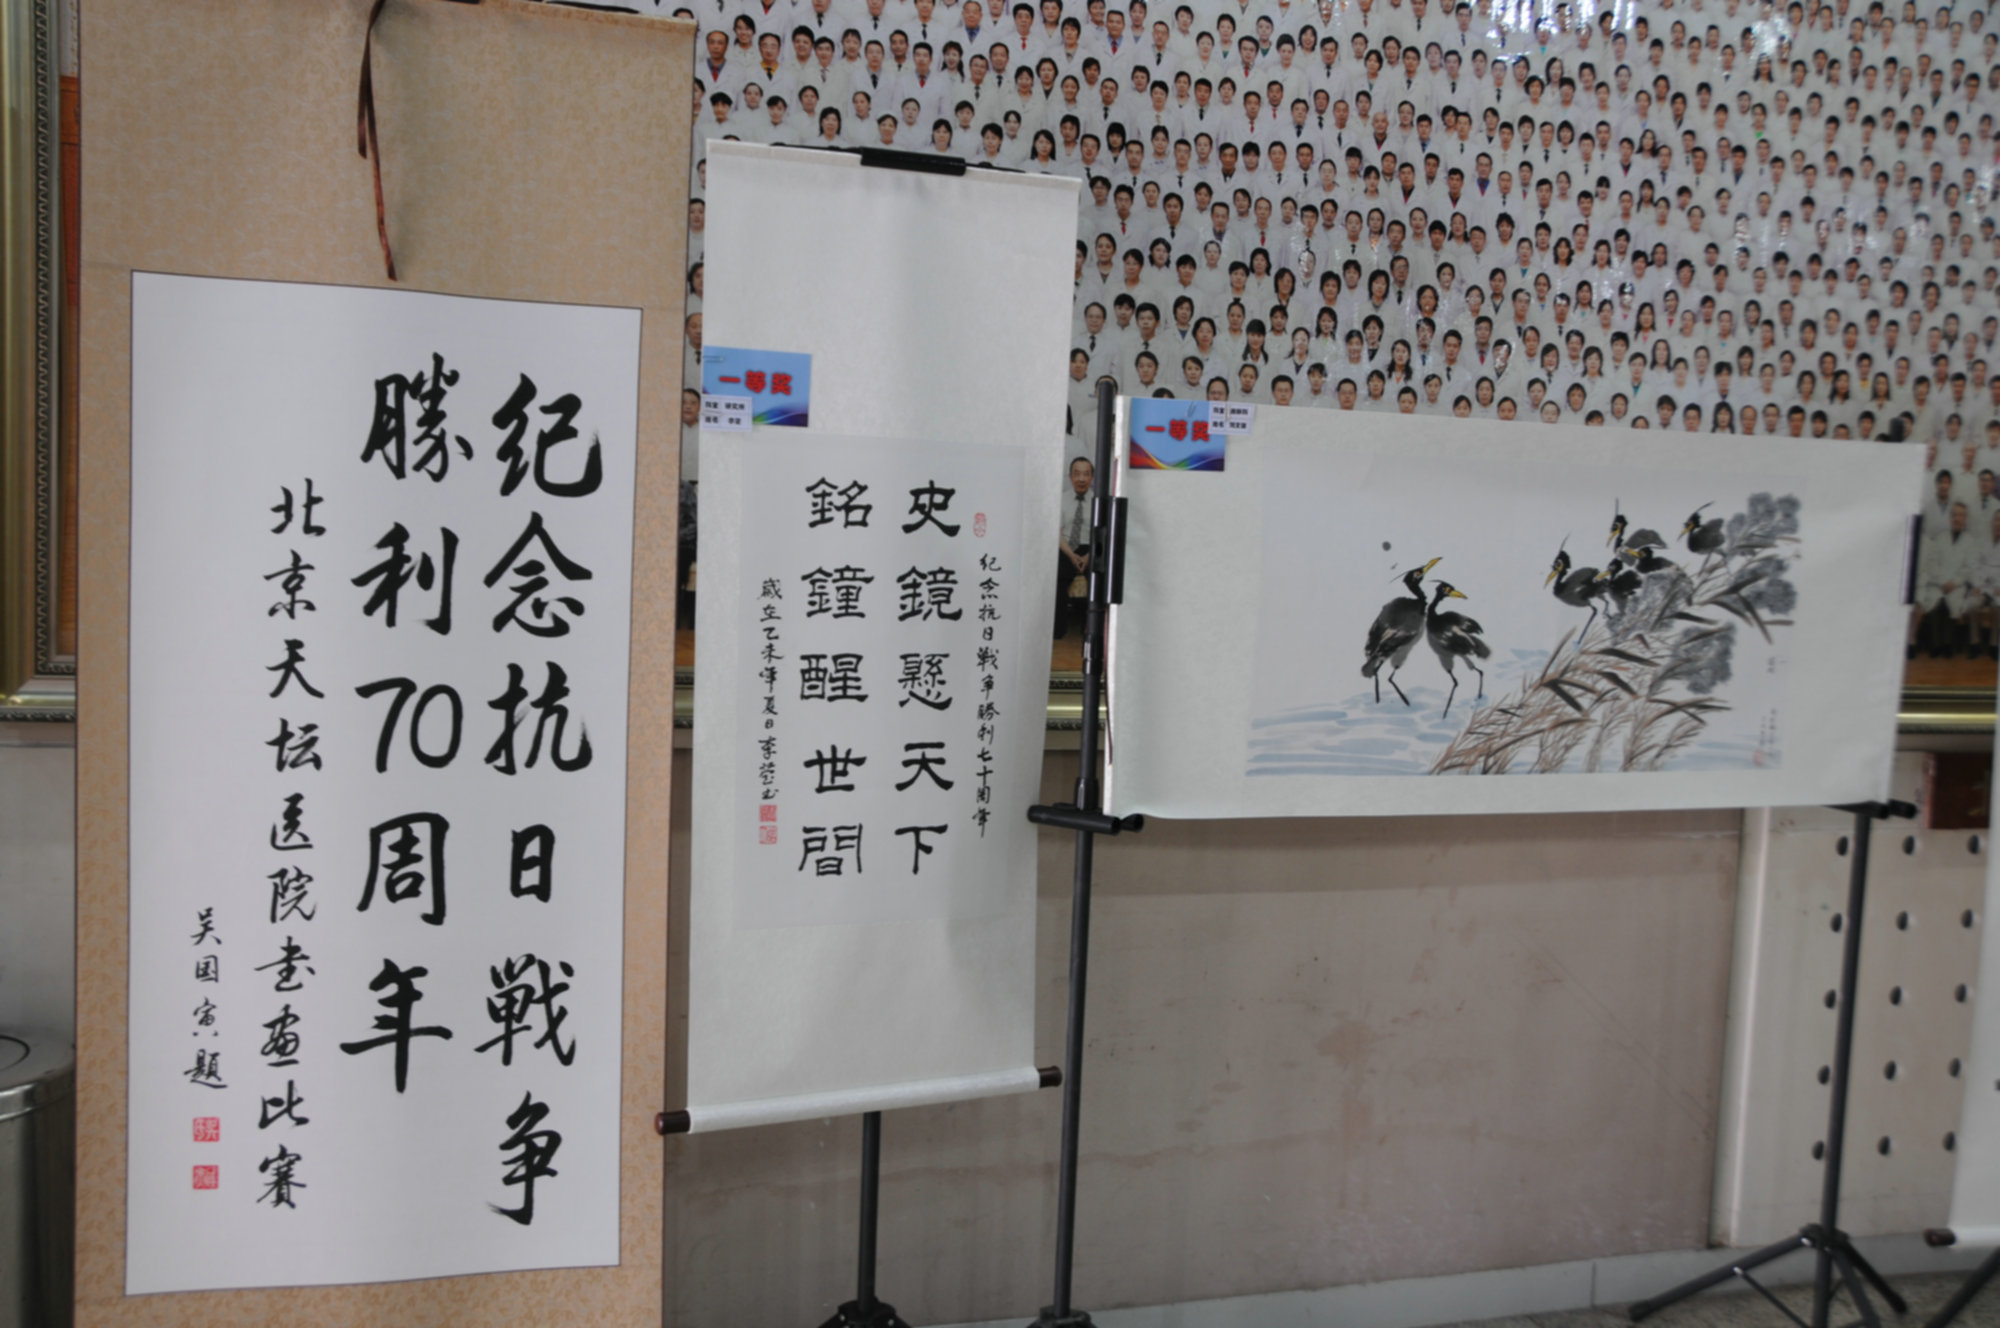 纪念抗日戰争
勝利70周年
北京天坛医院书画比赛
吴国寅题
一等奖
科室 研究所
姓名
纪念抗日戰争勝利七十周年
史鏡懸天下
銘鐘醒世間
歲在乙未年夏日李莹书
一等奖
科室
姓名